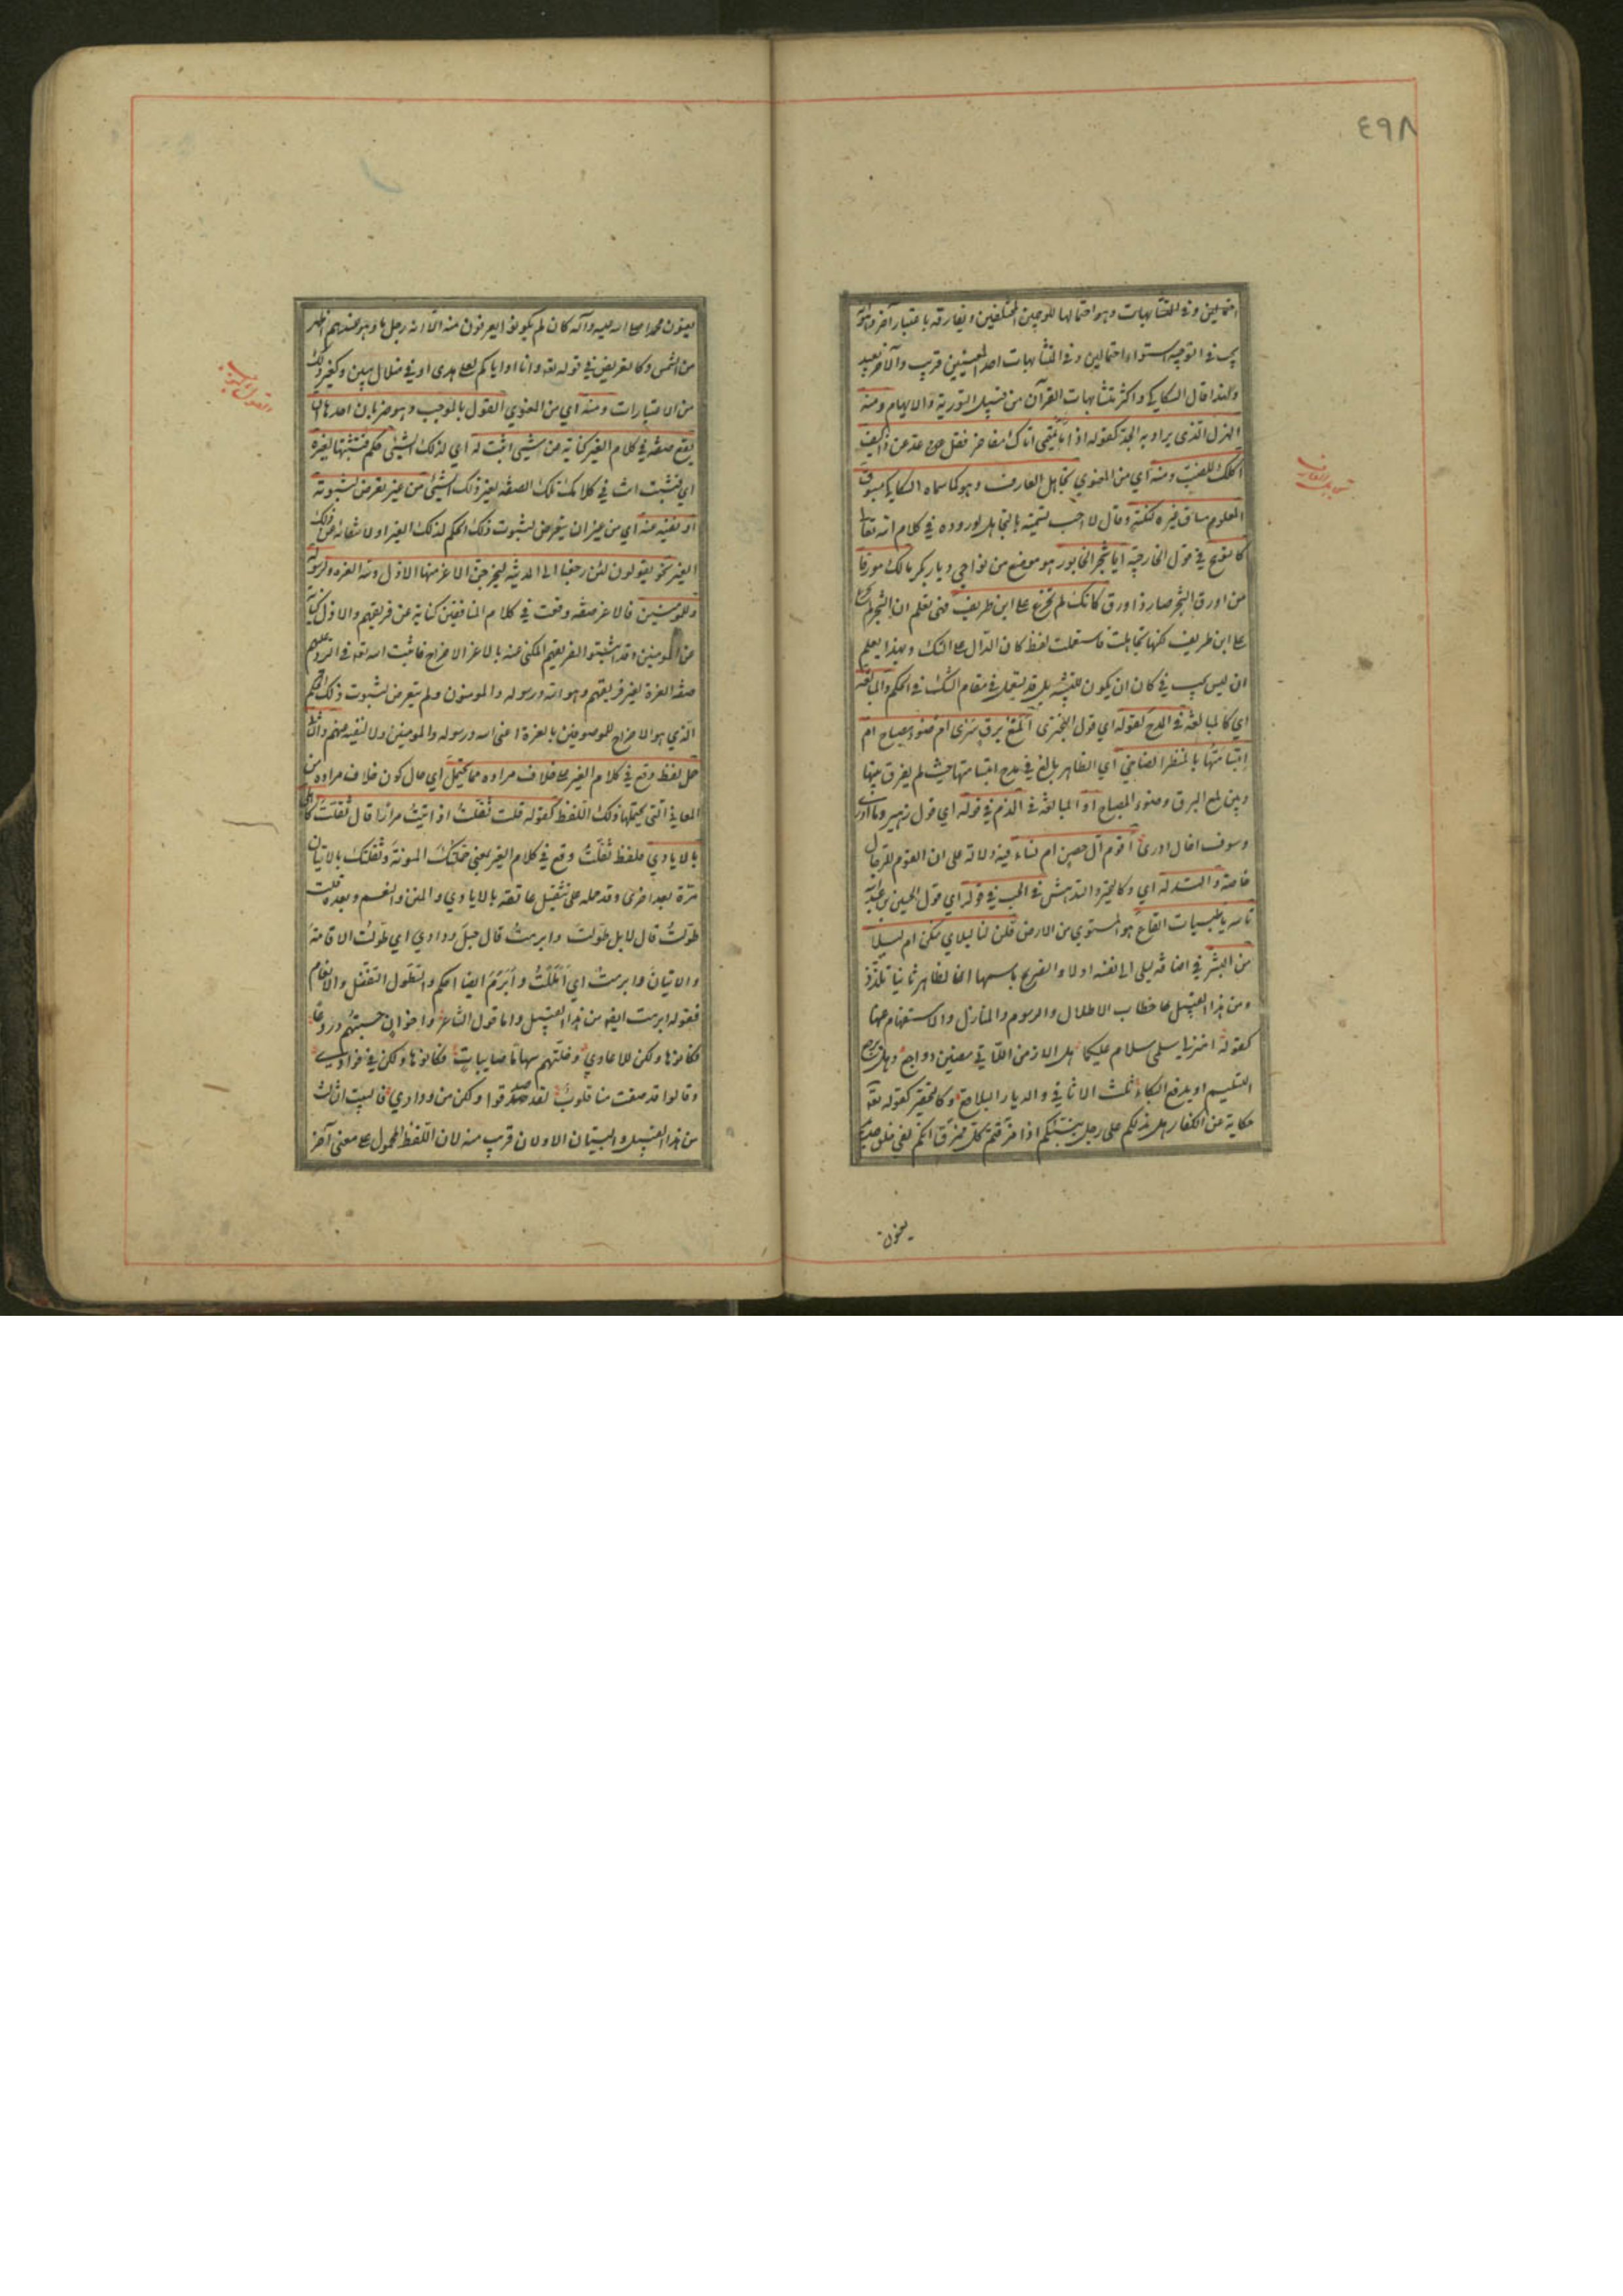 ٤٩٨
احتمالين وفي المتشابهات وهو احتمالها للوجهين المختلفين ويفارقه باعتبار آخر وهو انه
يجب في التوجيه استواء الاحتمالين وفي المتشابهات احد المعنيين قريب والآخر بعيد
ولهذا قال السكاكي واكثر متشابهات القرآن من قبيل التورية والايهام ومنه
الهزل الذي يراد به الجد كقوله اذا ما تميمي اتاك مفاخر فقل عد عن ذا كيف
اكلك للضب ومنه اي من المعنوي تجاهل العارف وهو كما سماه السكاكي سوق
المعلوم مساق غيره لنكتة وقال لا احب تسميته بالتجاهل لوروده في كلام الله تعالى
كالتوبيخ في قول الخارجية ايا شجر الخابور هو موضع من نواحي ديار بكر مالك مورقا
من اورق الشجر صار ذا ورق كانك لم تجزع على ابن طريف فهي تعلم ان الشجر لم تجزع
على ابن طريف لكنها تجاهلت فاستعملت لفظ كان الدال على الشك وبهذا يعلم
ان ليس يجب في كان ان يكون للتشبيه بل قد يستعمل في مقام الشك في الحكم والمبالغة
اي كالمبالغة في المدح كقوله اي قول البحتري ألمع برق سرى ام ضوء مصباح ام
ابتسامتها بالمنظر الضاحي اي الظاهر بالغ في مدح ابتسامتها حيث لم يفرق بينها
وبين لمع البرق وضوء المصباح او المبالغة في الذم في قوله اي قول زهير وما ادري
وسوف اخال ادري أقوم آل حصن ام نساء فيه دلالة على ان القوم للرجال
خاصة والتدله اي وكالتحير والتدهش في الحب في قوله اي قول الحسين بن عبد الله
تالله يا ظبيات القاع هو المستوي من الارض قلن لنا ليلاي منكن ام ليلى
من البشر في اضافة ليلى الى نفسه اولا والتصريح باسمها الظاهر ثانيا تلذذ
ومن هذا القبيل خطاب الاطلال والرسوم والمنازل والاستفهام عنها
كقوله امنزلي سلمى سلام عليكما هل الازمن اللاتي مضين رواجع وهل يرجع
التسليم او يدفع البكاء ثلث الاثافي والديار البلاقع وكالتحقير كقوله تعالى
حكاية عن الكفار هل ندلكم على رجل ينبئكم اذا مزقتم كل ممزق انكم لفي خلق جديد
يعنون
تجاهل العارف
يعنون محمدا صلى الله عليه وآله كان لم يكونوا يعرفون منه الا انه رجل ما وهو عندهم اظهر
من الشمس وكالتعريض في قوله تعالى وانا او اياكم لعلى هدى او في ضلال مبين وكغير ذلك
من الاعتبارات ومنه اي من المعنوي القول بالموجب وهو ضربان احدهما ان
يقع صفة في كلام الغير كناية عن شيء اثبت له اي لذلك الشيء حكم فتثبتها لغيره
اي فتثبت انت في كلامك تلك الصفة لغير ذلك الشيء من غير تعرض لثبوته
او نفيه عنه اي من غير ان يتعرض لثبوت ذلك الحكم لذلك الغير او لانتفائه عن ذلك
الغير نحو يقولون لئن رجعنا الى المدينة ليخرجن الاعز منها الاذل ولله العزة ولرسوله
وللمومنين فالاعز صفة وقعت في كلام المنافقين كناية عن فريقهم والاذل كناية
عن المومنين وقد اثبتوا لفريقهم المكنى عنه بالاعز الاخراج فاثبت الله تعالى في الرد عليهم
صفة العزة لغير فريقهم وهو الله ورسوله والمومنون ولم يتعرض لثبوت ذلك الحكم
الذي هو الاخراج للموصوفين بالعزة اعني الله ورسوله والمومنين ولا لنفيه عنهم والثاني
حمل لفظ وقع في كلام الغير على خلاف مراده مما يحتمل اي حال كون خلاف مراده من
المعاني التي يحتملها ذلك اللفظ كقوله قلت ثقلت اذ اتيت مرارا قال ثقلت كاهلي
بالايادي فلفظ ثقلت وقع في كلام الغير بمعنى حملتك المونة وثقلتك بالاتيان
مرة بعد اخرى وقد حمله على تثقيل عاتقه بالايادي والمنن والنعم وبعده قلت
طولت قال لا بل تطولت وابرمت قال حبل ودادي اي طولت الاقامة
والاتيان وابرمت اي املكت وابرم ايضا احكم والتطول التفضل والانعام
فقوله ابرمت ايضا من هذا القبيل واما قول الشاعر واخوان حسبتهم دروعا
فكانوها ولكن للاعادي وخلتهم سهاما صايبات فكانوها ولكن في فوادي
وقالوا قد صفت منا قلوب لقد صدقوا ولكن من ودادي فالبيت الثالث
من هذا القبيل والبيتان الاولان قريب منه لان اللفظ المحمول على معنى آخر
والقول بالموجب